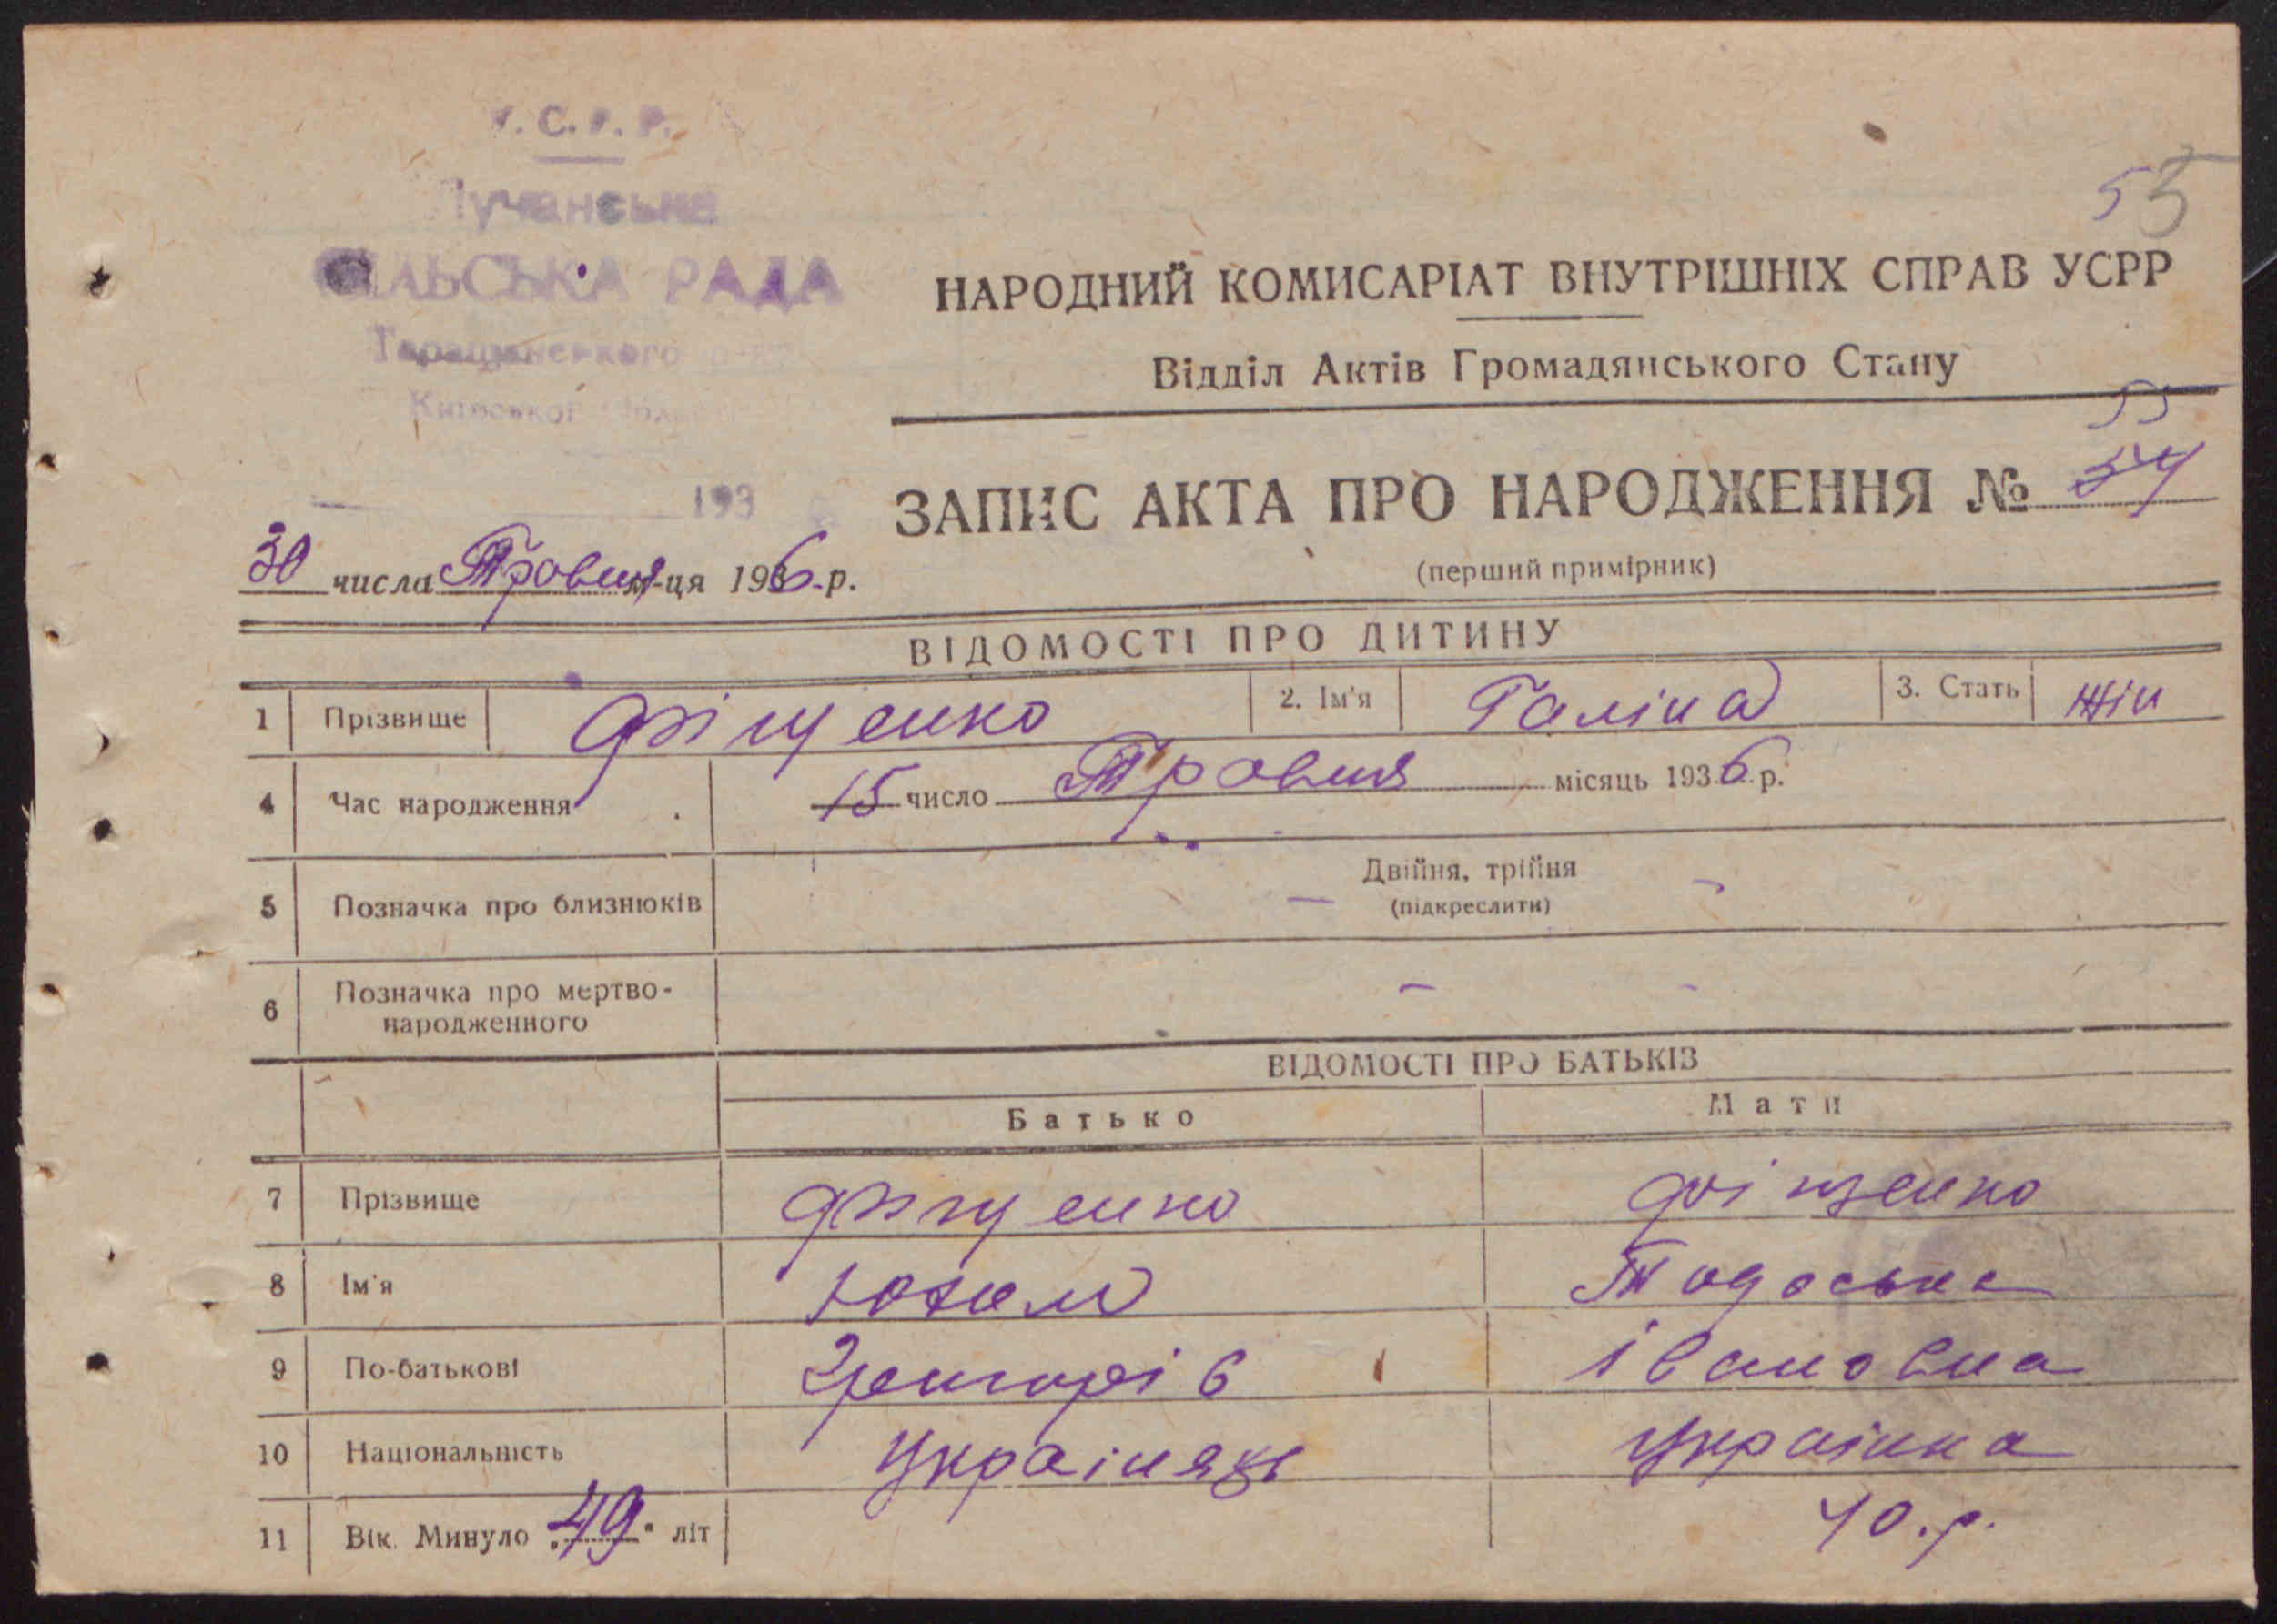 У. С. Р. Р.
Лучанська
СІЛЬСЬКА РАДА
Таращанського р-ну
Київської області
193
55
НАРОДНИЙ КОМИСАРІАТ ВНУТРІШНІХ СПРАВ УСРР
Відділ Актів Громадянського Стану
55
ЗАПИС АКТА ПРО НАРОДЖЕННЯ № 54
(перший примірник)
30 числа Травня м-ця 1936 р.
ВІДОМОСТІ ПРО ДИТИНУ
1 Прізвище Фіщенко 2. Ім'я Галіна 3. Стать жін
4 Час народження 15 число Травня місяць 1936 р.
5 Позначка про близнюків Двійня, трійня
(підкреслити)
6 Позначка про мертво-
народженного
ВІДОМОСТІ ПРО БАТЬКІВ
Батько Мати
7 Прізвище Фіщенко Фіщенко
8 Ім'я Юхим Тодоська
9 По-батькові Григорів Івановна
10 Національність Українець Українка
11 Вік. Минуло 49 літ 40.р.